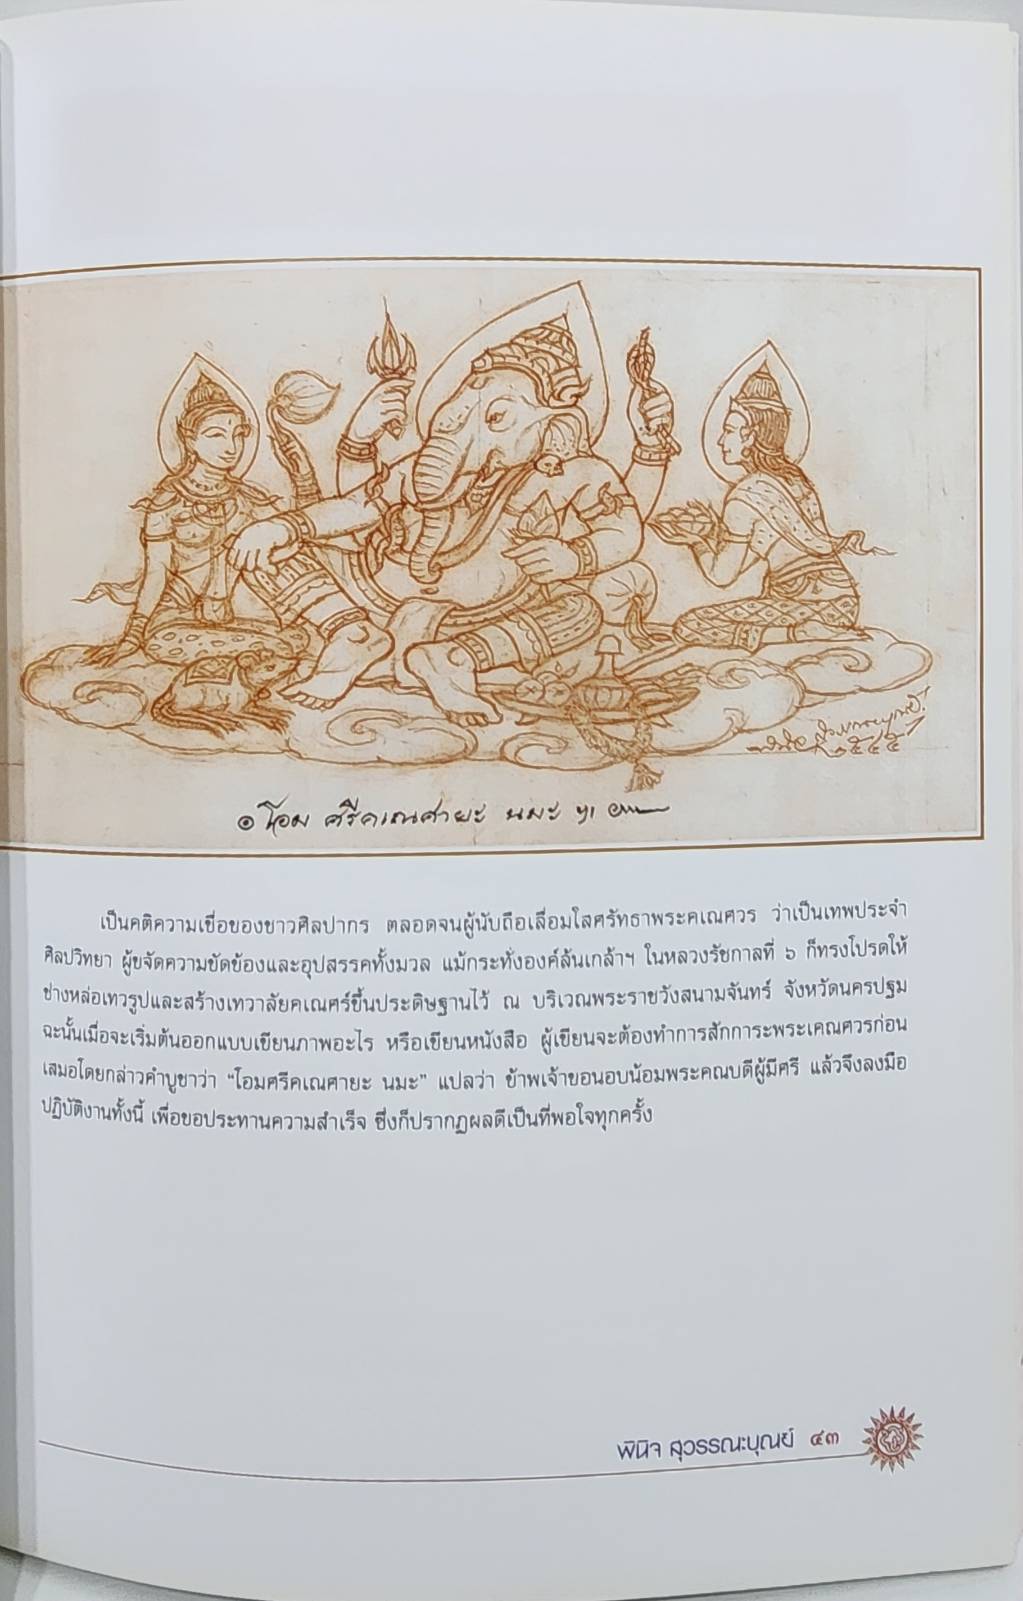 พินิจ สุวรรณะบุณย์
๒๕๔๕
๏ โอม ศรีคเณศายะ นมะ ฯ
เป็นคติความเชื่อของชาวศิลปากร ตลอดจนผู้นับถือเลื่อมใสศรัทธาพระคเณศวร ว่าเป็นเทพประจำ
ศิลปวิทยา ผู้ขจัดความขัดข้องและอุปสรรคทั้งมวล แม้กระทั่งองค์ล้นเกล้าฯ ในหลวงรัชกาลที่ ๖ ก็ทรงโปรดให้
ช่างหล่อเทวรูปและสร้างเทวาลัยคเณศร์ขึ้นประดิษฐานไว้ ณ บริเวณพระราชวังสนามจันทร์ จังหวัดนครปฐม
ฉะนั้นเมื่อจะเริ่มต้นออกแบบเขียนภาพอะไร หรือเขียนหนังสือ ผู้เขียนจะต้องทำการสักการะพระเคณศวรก่อน
เสมอโดยกล่าวคำบูชาว่า “โอมศรีคเณศายะ นมะ” แปลว่า ข้าพเจ้าขอนอบน้อมพระคณบดีผู้มีศรี แล้วจึงลงมือ
ปฏิบัติงานทั้งนี้ เพื่อขอประทานความสำเร็จ ซึ่งก็ปรากฏผลดีเป็นที่พอใจทุกครั้ง
พินิจ สุวรรณะบุณย์ ๔๓